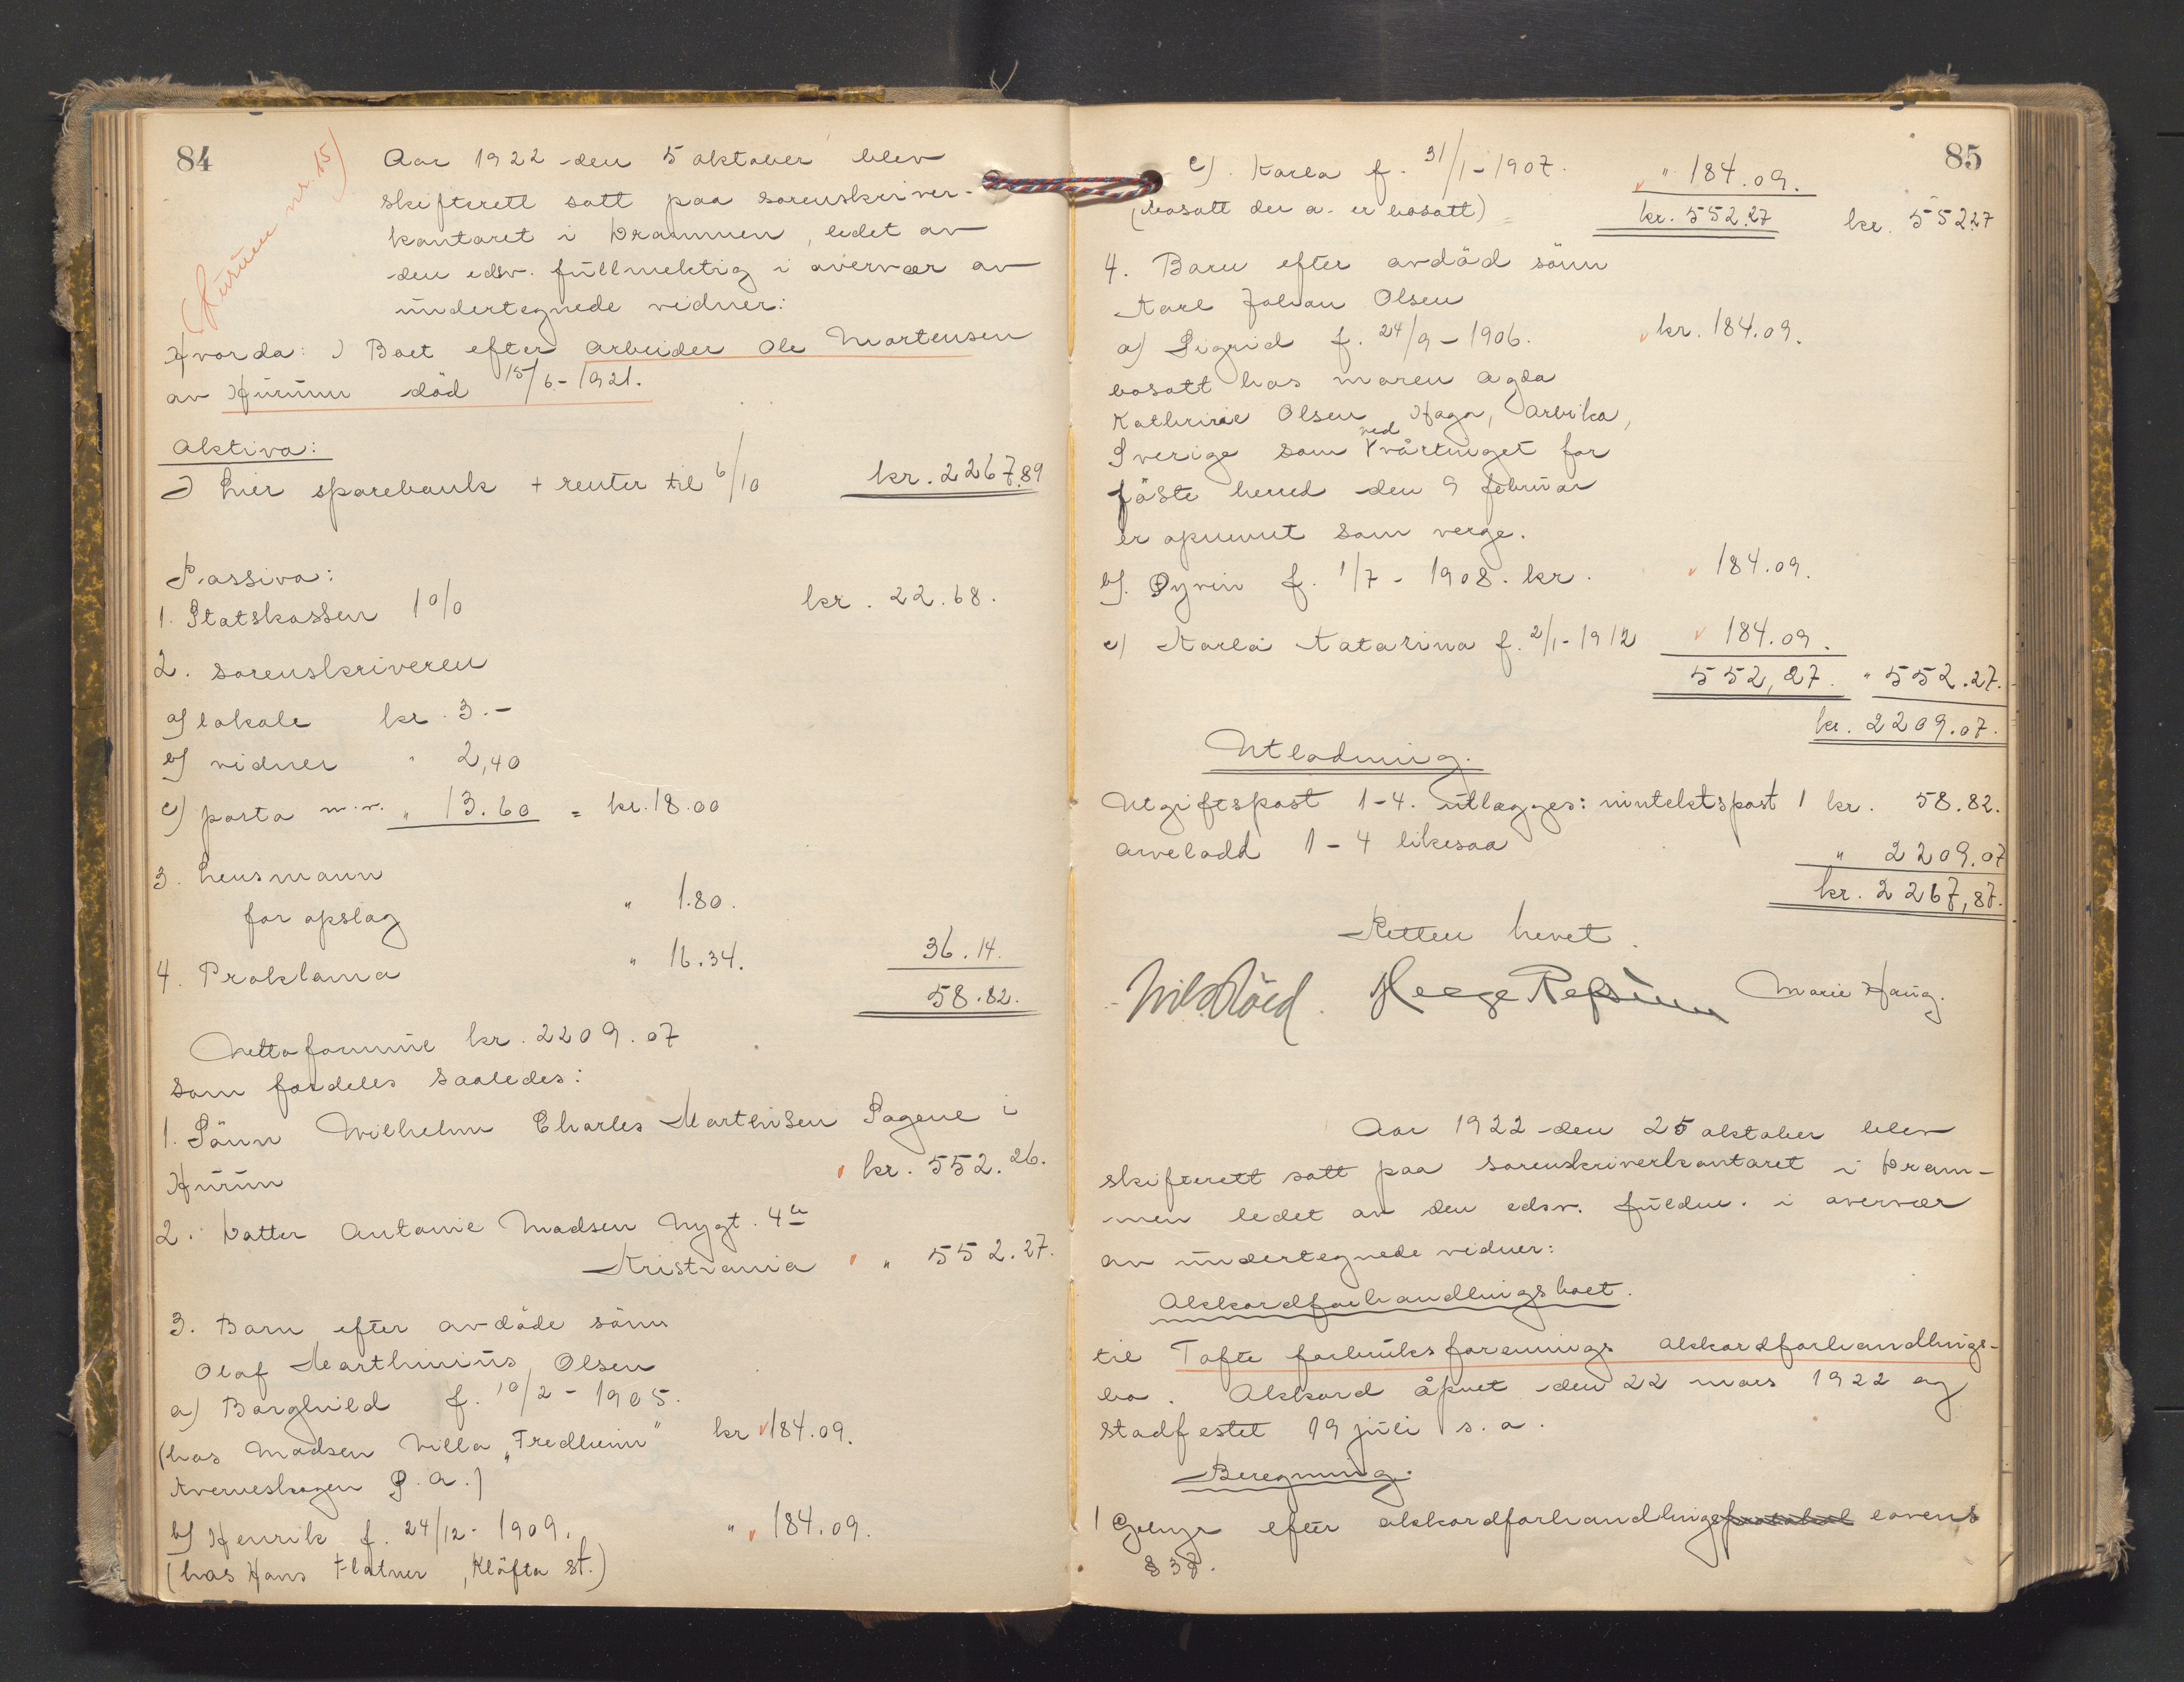 84
(Hurum nr. 15)
Aar 1922 den 5 oktober blev
skifterett satt paa sorenskriver-
kontoret i Drammen, ledet av
den edsv. fullmektig i overvær av
undertegnede vidner:
Hvorda: 1) Boet efter arbeider Ole Mortensen
av Hurum död 15/6-1921.
Aktiva:
1) Lier sparebank + renter til 6/10 kr. 2267.89
Passiva:
1. Statskassen 1 0/0 kr. 22.68.
2. sorenskriveren
a) lokale kr. 3.-
b) vidner " 2,40
c) porto m.v. " 13.60 = kr. 18.00
3. Lensmann
for opslag " 1.80.
4. Proklama " 16.34. 36.14.
58.82.
Nettoformue kr. 2209.07
som fordeles saaledes:
1. Sönn Wilhelm Charles Marthisen Sagene i
Hurum kr. 552.26.
2. Datter Antonie Madsen Nygt. 4
Kristiania " 552.27.
3. Barn efter avdöde sönn
Olaf Marthinius Olsen
a) Borghild f. 10/2-1905.
(hos Madsen Villa "Fredheim" kr 184.09.
Kverneskogen P.a.)
b) Henrik f. 24/12-1909. " 184.09.
(hos Hans Flatner, Klöfta st.)
85
c). Karla f. 31/1-1907. " 184.09.
(bosatt der a. er bosatt) = kr. 552.27 kr. 552.27
4. Barn efter avdöd sönn
Karl Johan Olsen
a) Sigrid f. 24/9-1906. kr. 184.09.
bosatt hos moren Agda
Kathrine Olsen, Haga, Arvika,
Sverige som ved Vårtinget for
Jöste herred den 9 februar
er opnevnt som verge.
b). Öyvin f. 1/7-1908. kr. 184.09.
c) Karla Katarina f. 2/1-1912 184.09.
552,27. " 552.27.
kr. 2209.07.
Utlodning.
Utgiftspost 1-4. utlægges: inntektspost 1 kr. 58.82.
arvelodd 1-4 likesaa " 2209.07
kr. 2267,87.
Retten hevet.
Helge Refsum Marie Haug.
Aar 1922 den 25 oktober blev
skifterett satt paa sorenskriverkontoret i Dram-
men ledet av den edsv. fuldm. i overvær
av undertegnede vidner:
Akkordforhandlingsboet.
til Tofte forbruksforenings akkordforhandlings-
bo. Akkord åpnet den 22 mars 1922 og
stadfestet 19 juli s.a.
Beregning.
1 Gebyr efter akkordforhandlingsprotokol lovens
§ 37.